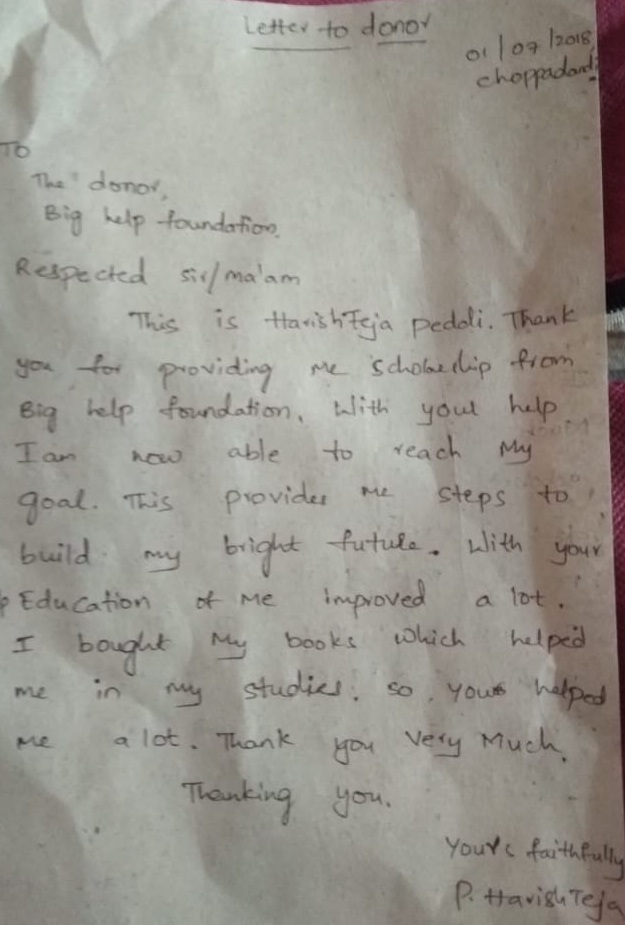 Letter to donor
01/07/2018
choppadandi
TO
The donor,
Big help foundation.
Respected sir/ma'am
This is HarishTeja peddi. Thank
you for providing me scholarship from
Big help foundation. With your help
I am now able to reach My
goal. This provides me steps to
build my bright future. With your
Education of me improved a lot.
I bought My books which helped
me in my studies. so. your helped
me a lot. Thank you Very Much.
Thanking you.
Yours faithfully
P. HarishTeja